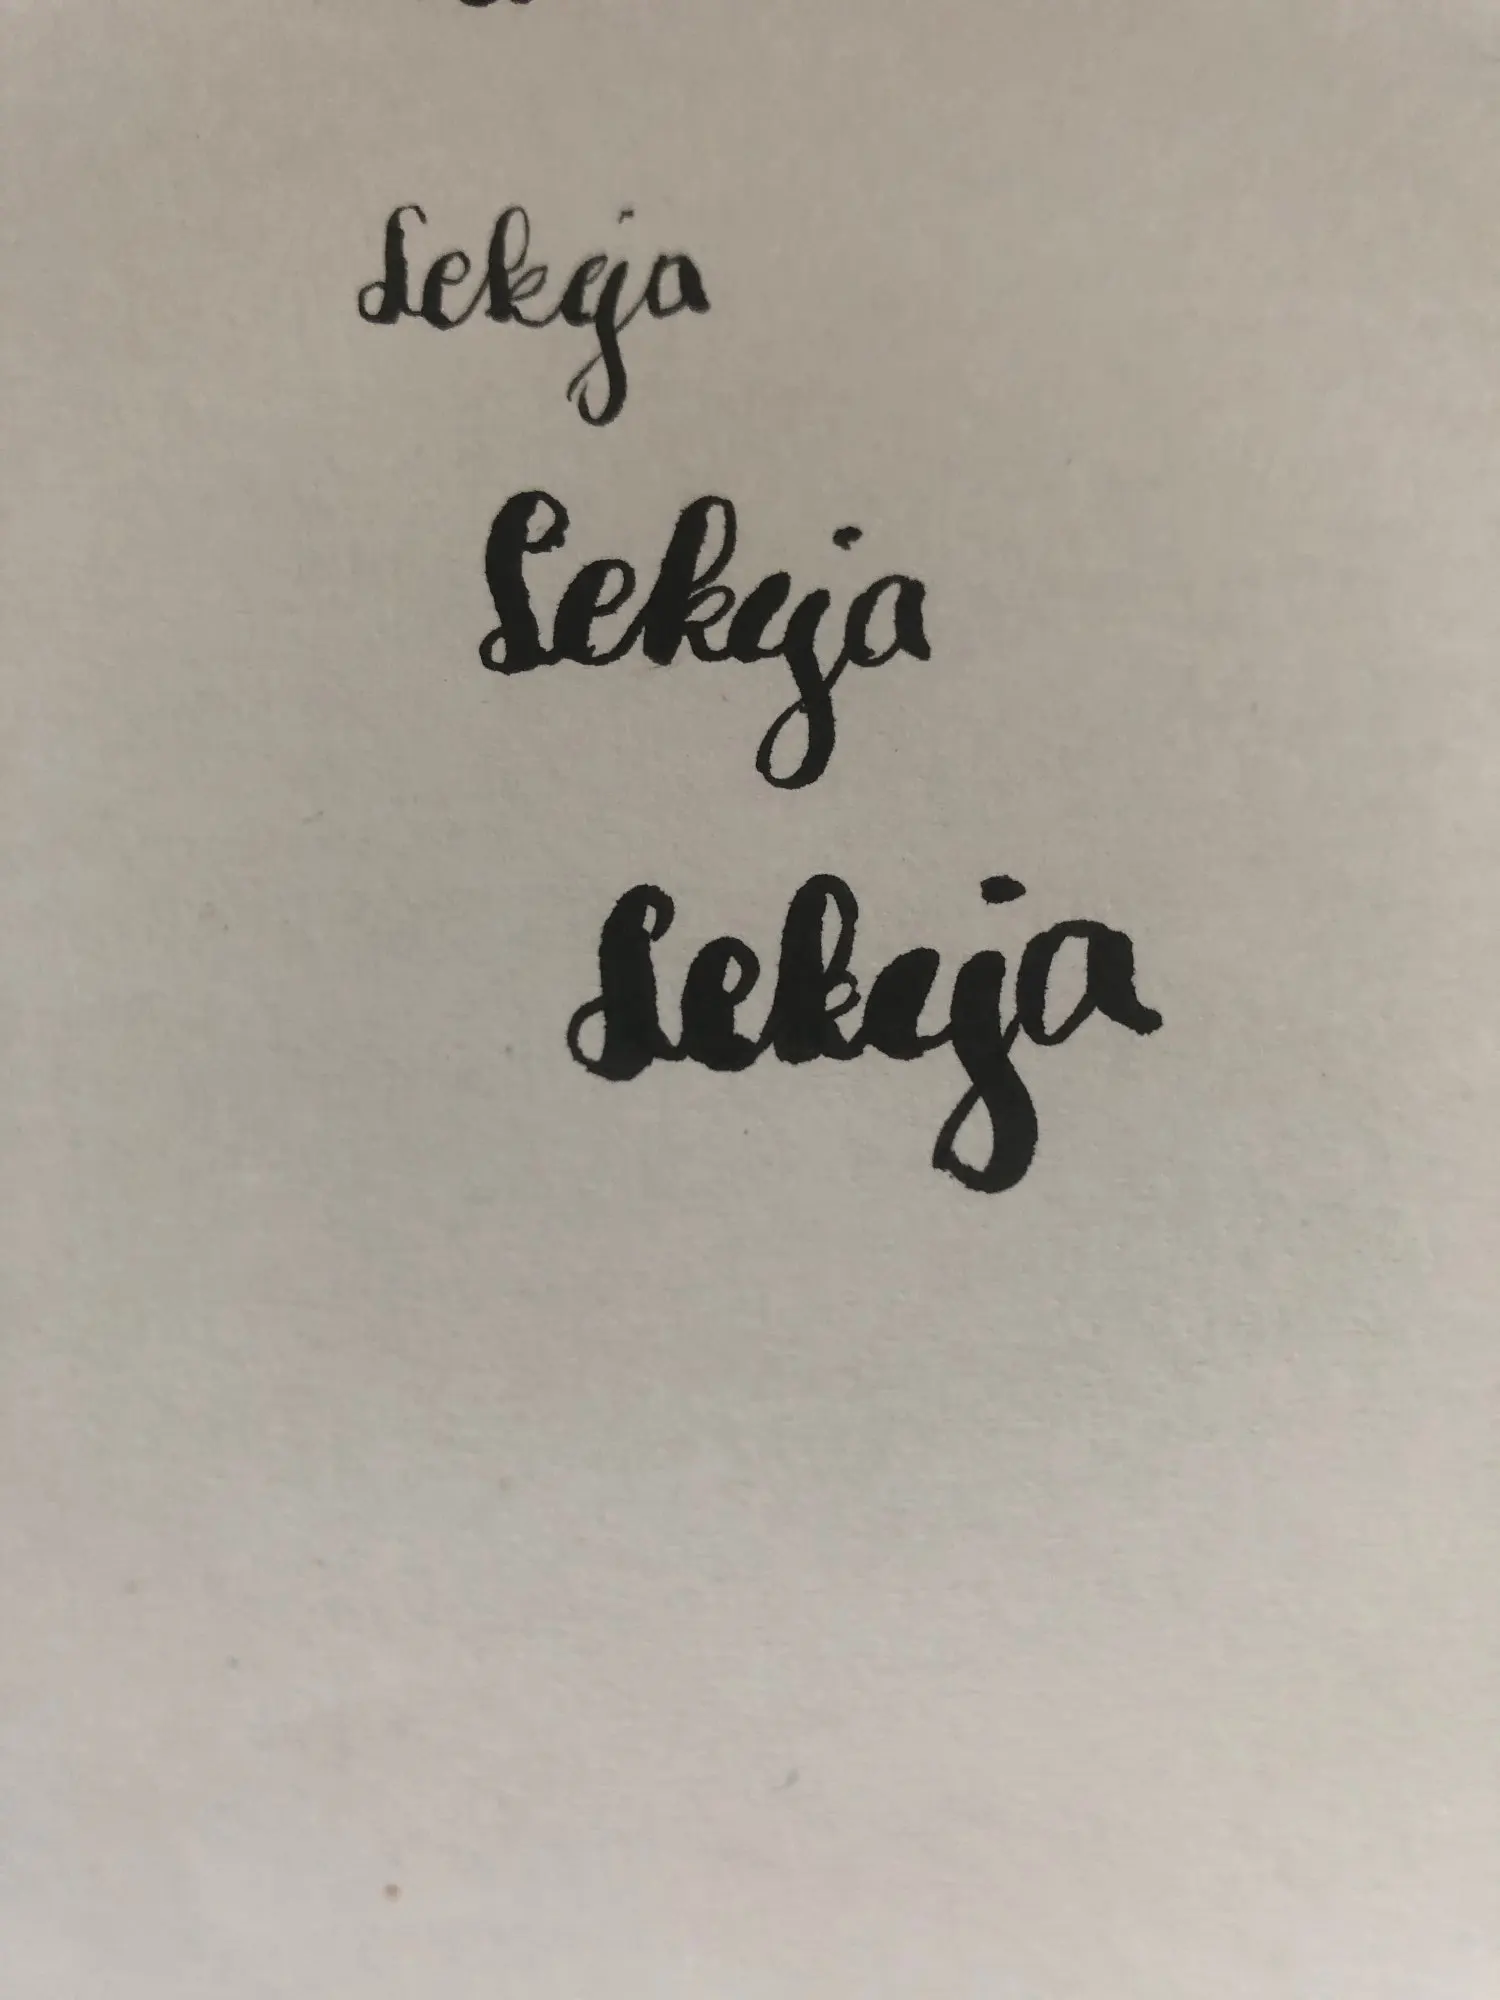 Lekcja
Lekcja
Lekcja